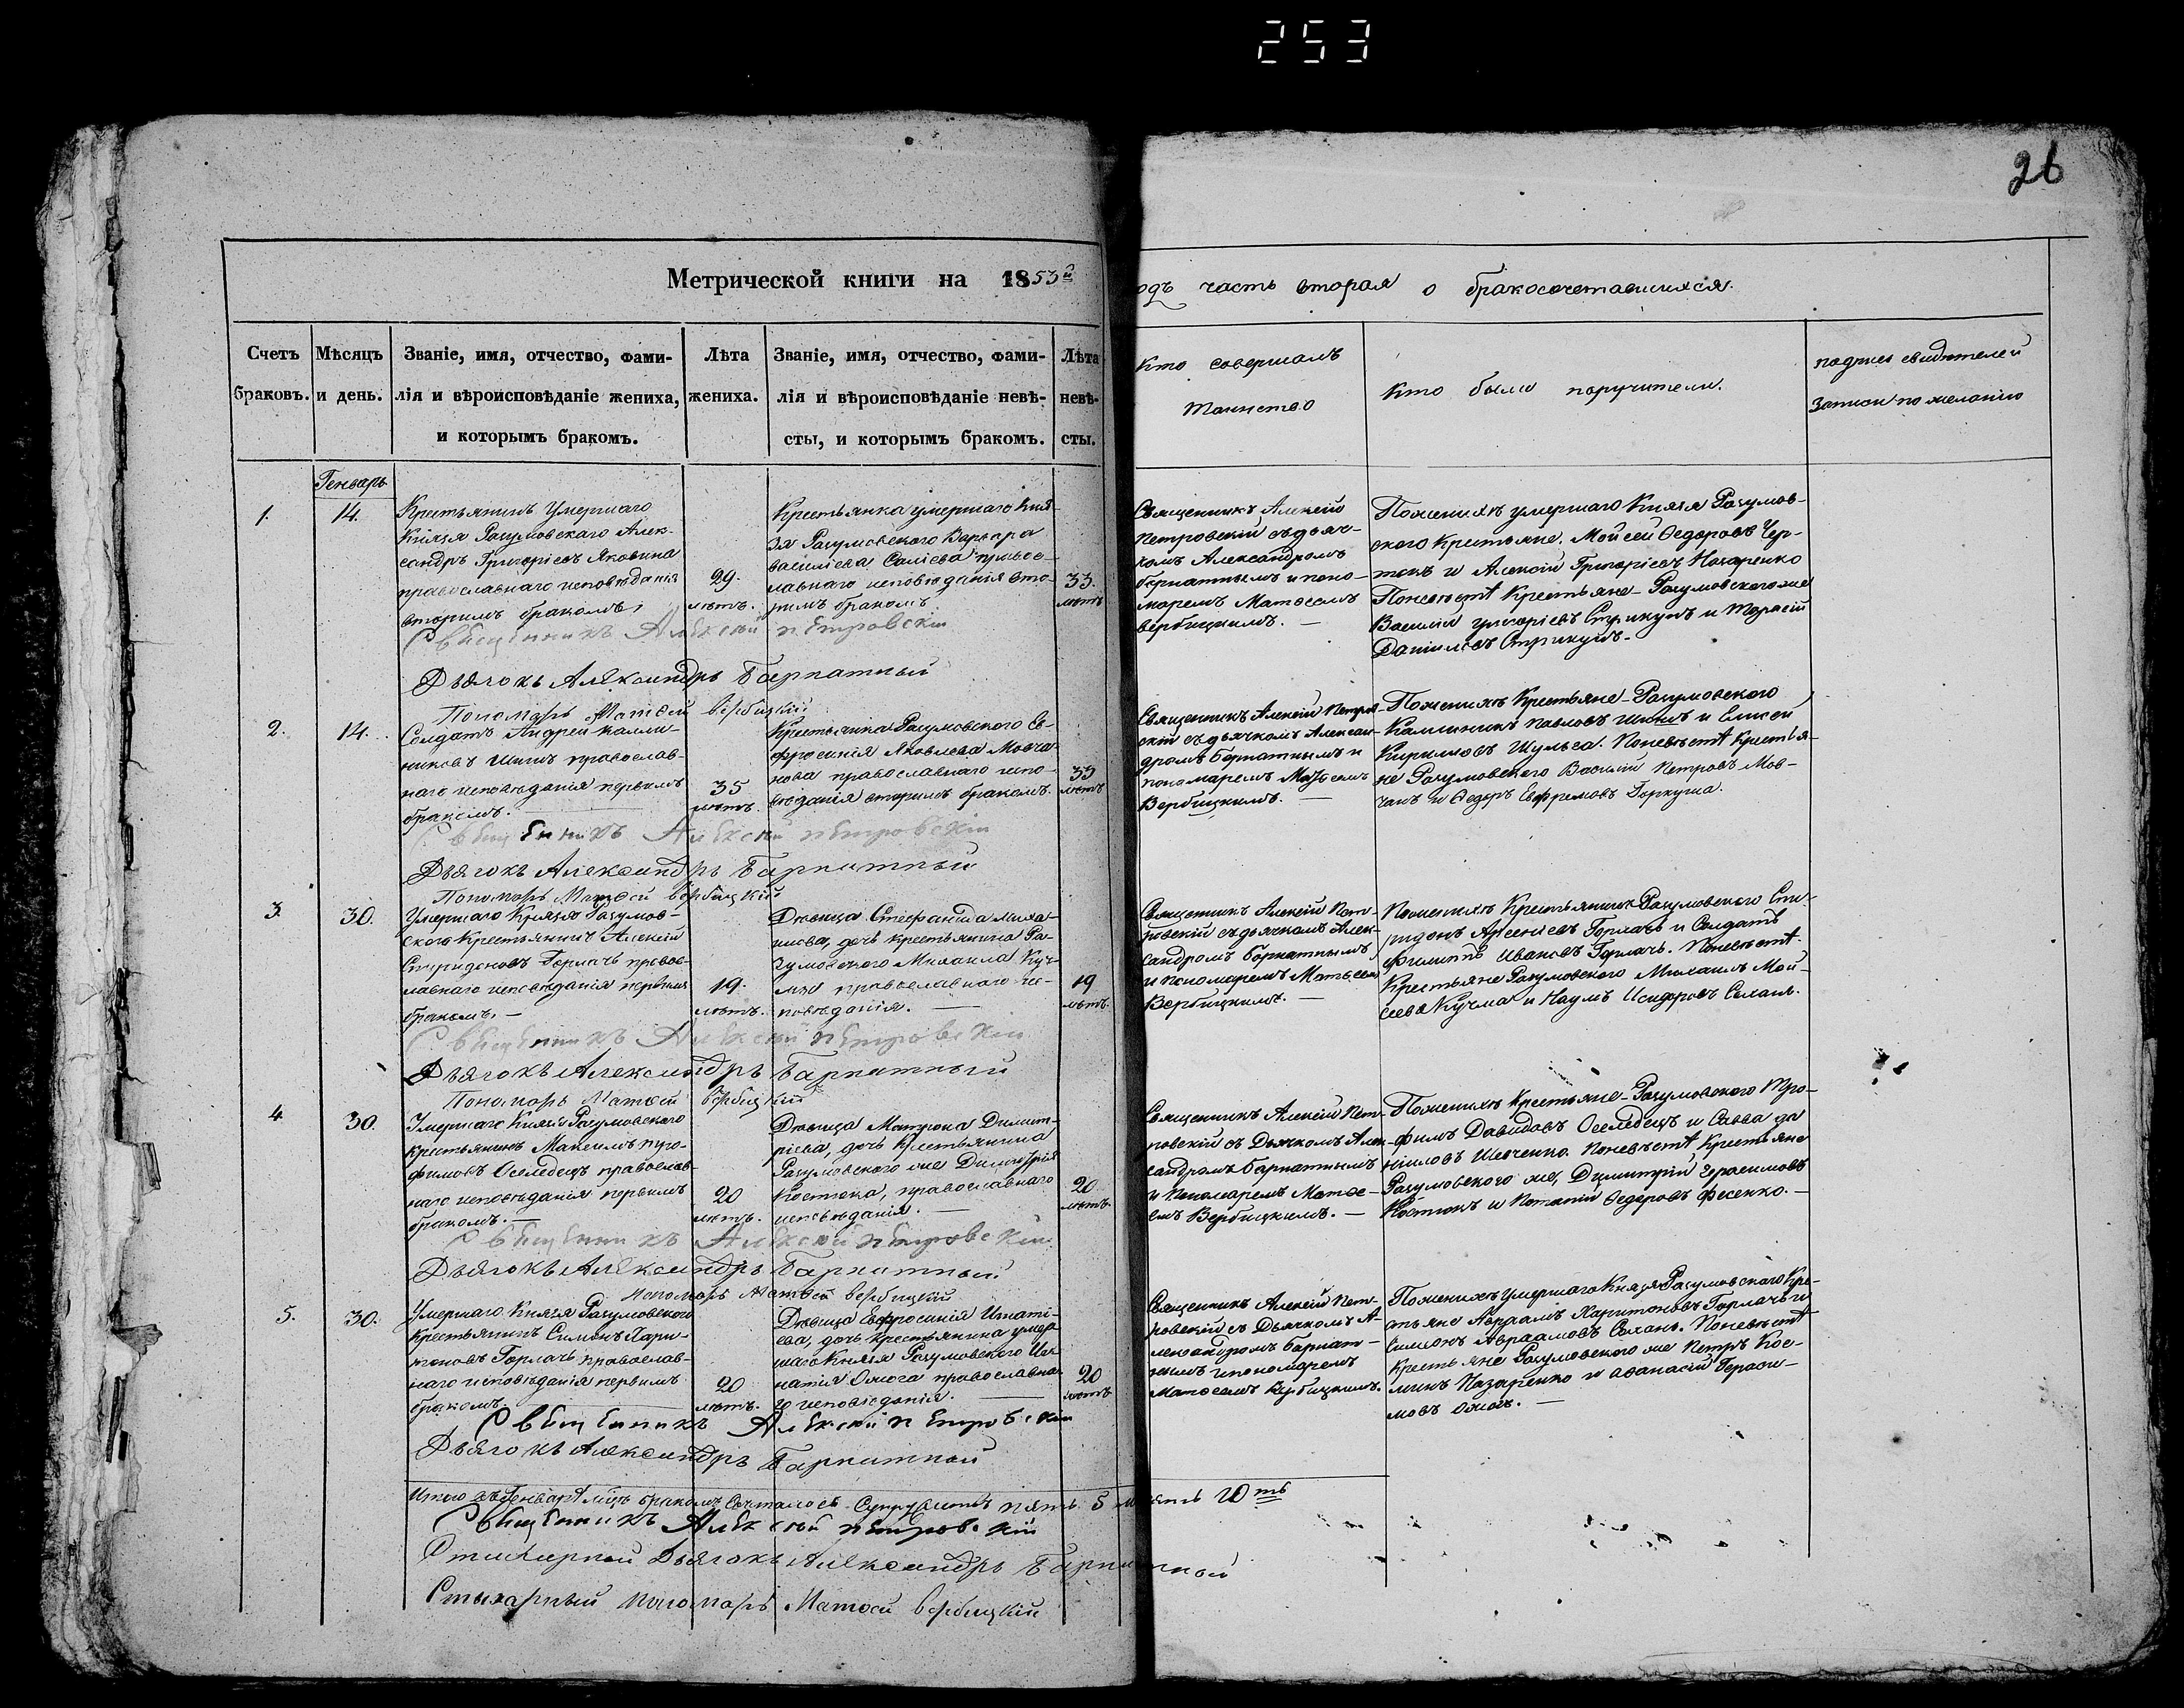 253
26
Метрической книги на 1853й
одъ часть вторая о бракосочетавшихся.
Счетъ браковъ.
Мѣсяцъ и день.
Званіе, имя, отчество, фами-
лія и вѣроисповѣданіе жениха,
и которымъ бракомъ.
Лѣта
жениха.
Званіе, имя, отчество, фами-
лія и вѣроисповѣданіе невѣ-
сты, и которымъ бракомъ.
Лѣта
невѣ-
сты.
Кто совершалъ
таинство
Кто были поручители.
подписи свидѣтелей
записи по желанію
Генварь
1.
14.
Крестьянинъ умершаго
Князя Разумовскаго Алек-
сандръ Григоріевъ Яковина
православнаго исповѣданія
вторымъ бракомъ,
29.
лѣтъ.
Крестьянка умершаго Кня-
зя Разумовского Варвара
василіева
лавнаго исповѣданія вто-
рымъ бракомъ
33.
лѣтъ
Священникъ Алексій
Петровскій съ дьяч-
комъ Александромъ
барнатнымъ и поно-
маремъ Матѳеемъ
вербицкимъ. —
По женихѣ умершаго Князя Разумов-
ского Крестьяне, Мойсей Ѳедоровъ Чер-
и Алексій Григорієвъ Назаренко
По невѣстѣ Крестьяне Разумовского же
Василій григоріевъ Стрикунъ и Тарасій
Даніиловъ Стрикунъ.
Священникъ Алексій петровскій
Дьячокъ Александръ Барнатный
Пономарь Матѳей вербицкій
2.
14.
Солдатъ Андрей Калли-
никовъ Шишъ православ-
наго исповѣданія первымъ
бракомъ.
35
лѣтъ.
Крестьянка Разумовского Ев-
фросинія Яковлева Мовча-
нова православнаго испо-
вѣданія вторымъ бракомъ.
33
лѣтъ
Священникъ Алексій Петров-
скій съ дьячкомъ Алексан-
дромъ барнатнымъ и
пономаремъ Матѳеемъ
Вербицкимъ. —
По женихѣ Крестьяне Разумовского
Каллиникъ Павловъ Шишъ и Елисей
Кирилловъ Шульга. По невѣстѣ Крестья-
не Разумовского Василій Петровъ Мов-
чанъ и Ѳедоръ Евфремовъ Гаркуша.
Священникъ Алексій петровскій
Дьячокъ Александръ Барнатный
Пономарь Матѳей вербицкій
3.
30.
Умершаго Князя Разумов-
ского Крестьянинъ Алексій
Спиридоновъ Горлачъ правос-
лавнаго исповѣданія первымъ
бракомъ. —
19.
лѣтъ.
Дѣвица Стефанида миха-
илова, дочь крестьянина Ра-
зумовского Михаила Куч-
мы православнаго ис-
повѣданія. —
19
лѣтъ.
Священникъ Алексій Пет-
ровскій съ дьячкомъ Алек-
сандромъ барнатнымъ
и пономаремъ Матѳеемъ
Вербицкимъ. —
По женихѣ Крестьянинъ Разумовского Спи-
ридонъ Арсеніевъ Горлачъ и Солдатъ
Филиппъ Ивановъ Горлачъ. По невѣстѣ
Крестьяне Разумовского Михаилъ Мой-
сеевъ Кучма и Наумъ Исидоровъ Саханъ.
Священникъ Алексій петровскій
Дьячокъ Александръ Барнатный
Пономарь Матѳей вербицкій
4
30.
Умершаго Князя Разумовского
крестьянинъ Максимъ тро-
фимовъ Оселедецъ православ-
наго исповѣданія первымъ
бракомъ. —
20
лѣтъ.
Дѣвица Матрона Димит-
ріева, дочь крестьянина
Разумовского же Димитрія
Костюка, православнаго
исповѣданія. —
20
лѣтъ.
Священникъ Алексій Пет-
ровскій съ Дьячкомъ Алек-
сандромъ барнатнымъ
и Пономаремъ Матѳе-
емъ Вербицкимъ. —
По женихѣ крестьяне Разумовского Тро-
фимъ Давидовъ Оселедецъ и Савва да
ніиловъ Шевченко. По невѣстѣ Крестьяне
Разумовского же, Димитрій Герасимовъ
Костюкъ и Потапій Ѳедоровъ Фесенко. —
Священникъ Алексій петровскій
Дьячокъ Александръ Барнатный
Пономарь Матѳей вербицкій
5.
30.
Умершаго Князя Разумовского
Крестьянинъ Симонъ Хари-
тоновъ Горлачъ православ-
наго исповѣданія первымъ
бракомъ.
20
лѣтъ.
Дѣвица Евфросинія Игнаті-
ева, дочь крестьянина умер-
шаго Князя Разумовского Иг-
натія православна-
го исповѣданія.
20
лѣтъ
Священникъ Алексій Пет-
ровскій съ Дьячкомъ А-
лександромъ барнат-
нымъ и пономаремъ
Матѳеемъ Вербицкимъ.
По женихѣ умершаго Князя Разумовского Кре-
стьяне Авраамъ Харитоновъ Горлачъ и
Симонъ Авраамовъ Саханъ. По невѣстѣ
крестьяне Разумовского же Петръ Кос-
минъ Назаренко и Афанасій Гераси-
мовъ
Священникъ Алексій петровскій
Дьячокъ Александръ Барнатной
Итого въ Генварѣ мцѣ бракомъ сочталось Супружествъ пять 5
Священникъ Алексій петровскій
Стихарный Дьячокъ Александръ Барнатной
Стихарный пономарь Матѳей вербицкій